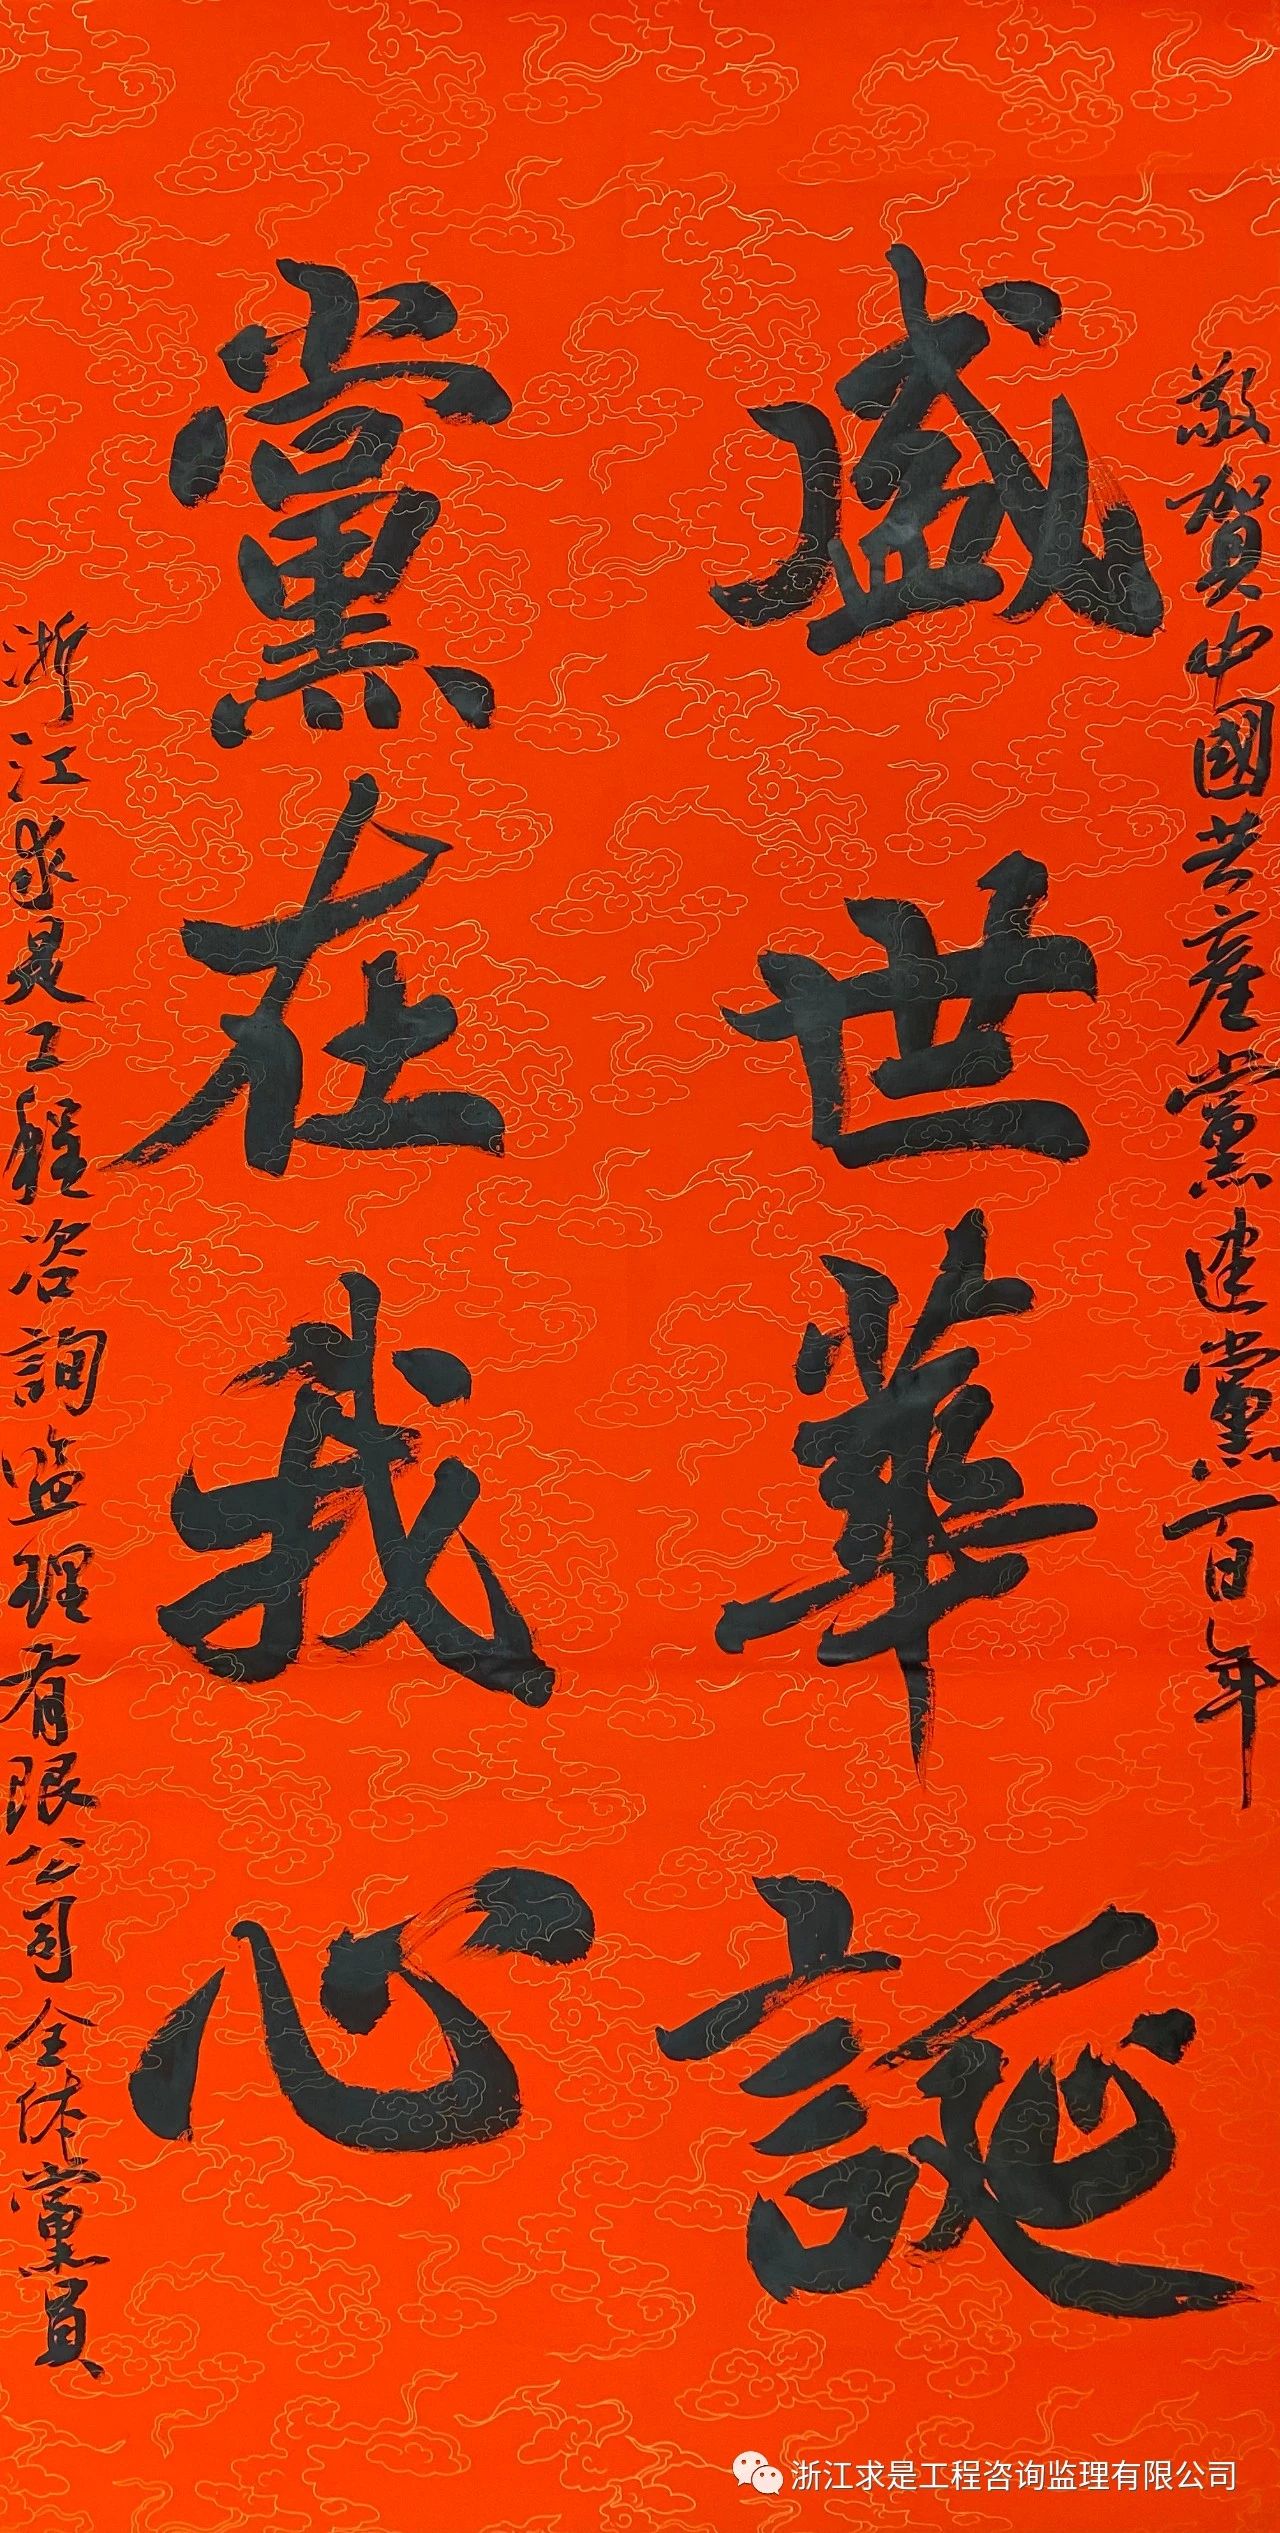 敬賀中國共産黨建黨一百年
盛世華誕
黨在我心
浙江求是工程咨詢监理有限公司全体黨員
浙江求是工程咨询监理有限公司